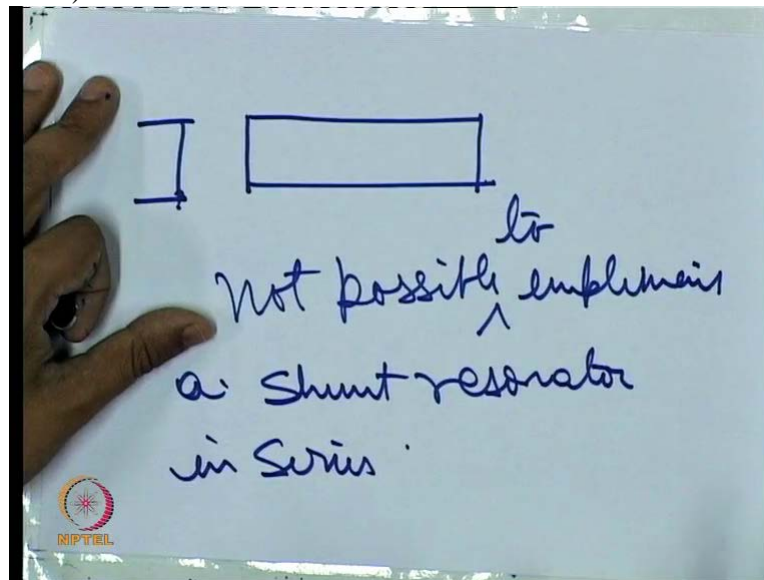 to
Not possible implement
a shunt resonator
in Series
NPTEL